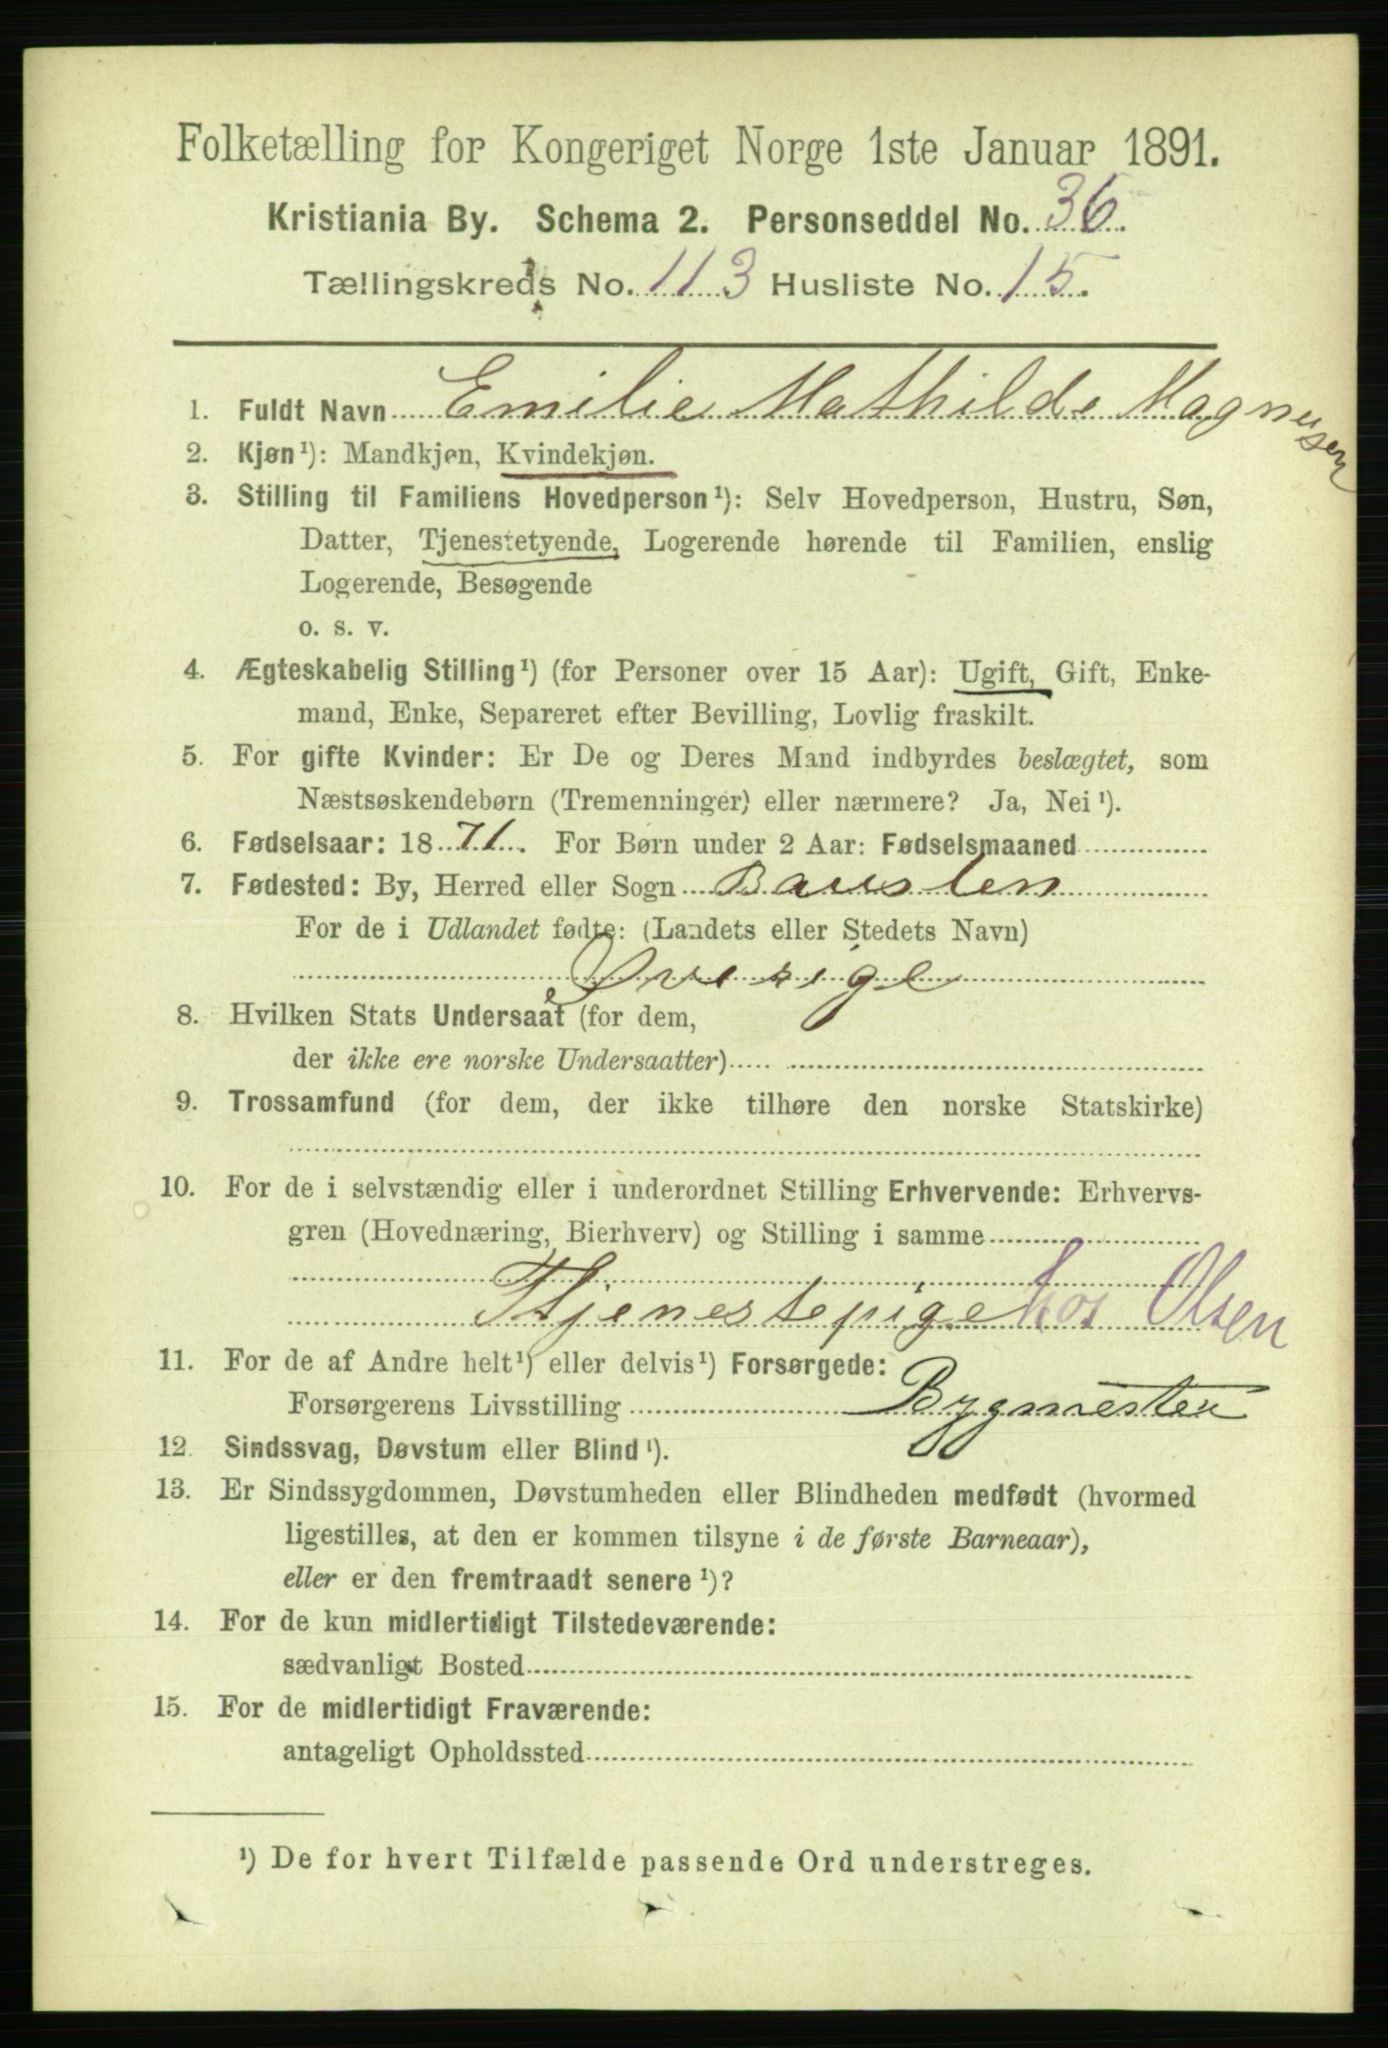 Folketælling for Kongeriget Norge 1ste Januar 1891.
Kristiania By. Schema 2. Personseddel No. 36.
Tællingskreds No. 113 Husliste No. 15.
1. Fuldt Navn Emilie Mathilde Magnusen
2. Kjøn¹): Mandkjøn, Kvindekjøn.
3. Stilling til Familiens Hovedperson¹): Selv Hovedperson, Hustru, Søn,
Datter, Tjenestetyende, Logerende hørende til Familien, enslig
Logerende, Besøgende
o. s. v.
4. Ægteskabelig Stilling¹) (for Personer over 15 Aar): Ugift, Gift, Enke-
mand, Enke, Separeret efter Bevilling, Lovlig fraskilt.
5. For gifte Kvinder: Er De og Deres Mand indbyrdes beslægtet, som
Næstsøskendebørn (Tremenninger) eller nærmere? Ja, Nei¹).
6. Fødselsaar: 1871. For Børn under 2 Aar: Fødselsmaaned
7. Fødested: By, Herred eller Sogn Bausten
For de i Udlandet fødte: (Landets eller Stedets Navn)
Sverige
8. Hvilken Stats Undersaat (for dem,
der ikke ere norske Undersaatter)
9. Trossamfund (for dem, der ikke tilhøre den norske Statskirke)
10. For de i selvstændig eller i underordnet Stilling Erhvervende: Erhvervs-
gren (Hovednæring, Bierhverv) og Stilling i samme
Tjenestepige hos Olsen
11. For de af Andre helt¹) eller delvis¹) Forsørgede:
Forsørgerens Livsstilling Bygmester
12. Sindssvag, Døvstum eller Blind¹).
13. Er Sindssygdommen, Døvstumheden eller Blindheden medfødt (hvormed
ligestilles, at den er kommen tilsyne i de første Barneaar),
eller er den fremtraadt senere¹)?
14. For de kun midlertidigt Tilstedeværende:
sædvanligt Bosted
15. For de midlertidigt Fraværende:
antageligt Opholdssted
¹) De for hvert Tilfælde passende Ord understreges.